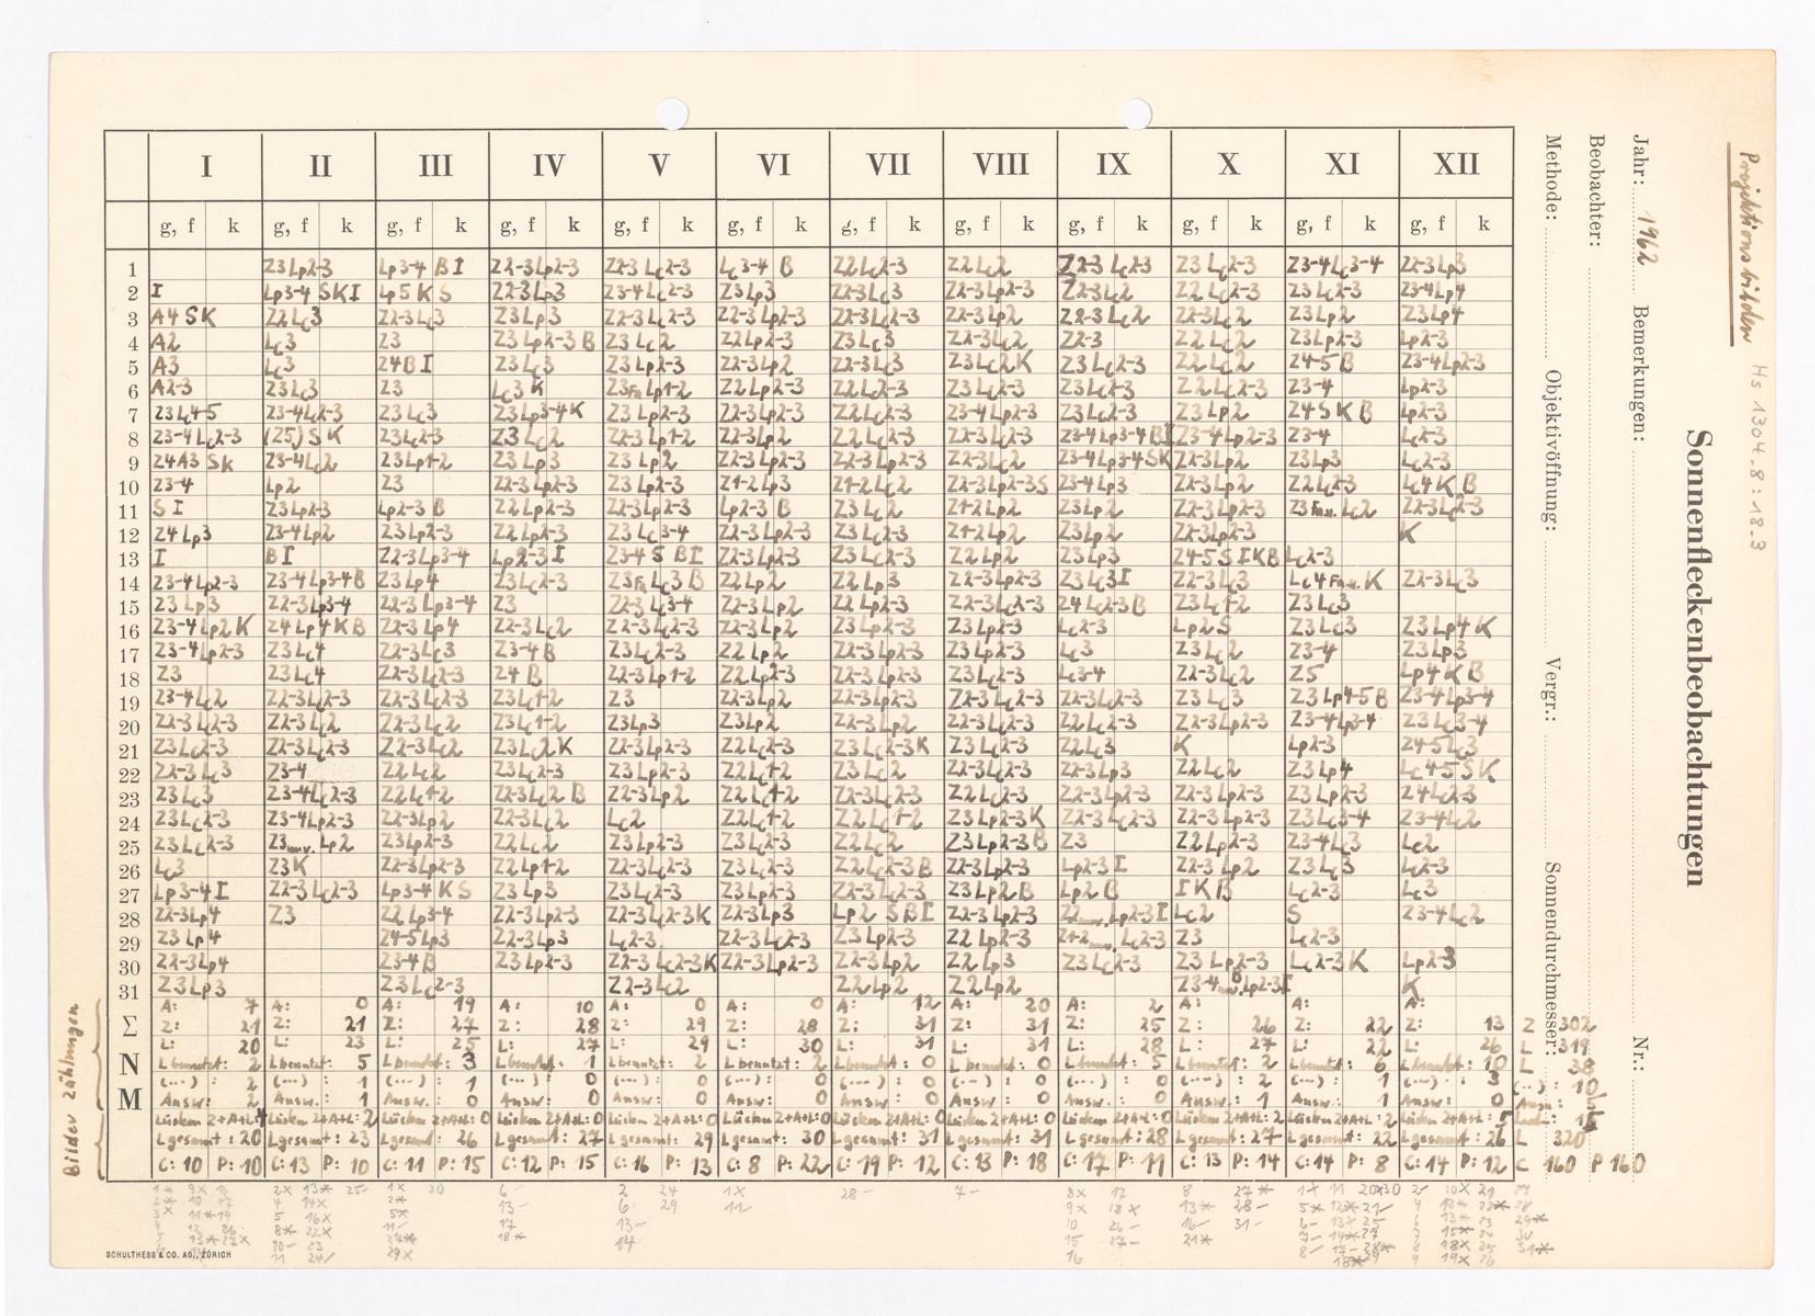 Projektionsbilder Hs 1304.8:18.3
Sonnenfleckenbeobachtungen
Jahr: 1962 Bemerkungen: Nr.:
Beobachter:
Methode: Objektivöffnung: Vergr.: Sonnendurchmesser:
I II III IV V VI VII VIII IX X XI XII
g, f k g, f k g, f k g, f k g, f k g, f k g, f k g, f k g, f k g, f k g, f k g, f k
1 Z3Lp2-3 Lp3-4 B I Z2-3Lp2-3 Z2-3 Lc2-3 Lc3-4 B Z2Lc2-3 Z2Lc2 Z2-3 Lc2-3 Z3 Lc2-3 Z3-4Lc3-4 Z2-3Lp3
2 I Lp3-4 SKI Lp5 K S Z2-3Lp3 Z3-4Lc2-3 Z3Lp3 Z2-3Lc3 Z2-3Lp2-3 Z2-3Lc2 Z2 Lc2-3 Z3Lc2-3 Z3-4Lp4
3 A4 SK Z2Lc3 Z2-3Lc3 Z3Lp3 Z2-3Lc2-3 Z2-3Lp2-3 Z2-3Lc2-3 Z2-3Lp2 Z2-3Lc2 Z2-3Lc2 Z3Lp2 Z3Lp4
4 A2 Lc3 Z3 Z3Lp2-3 B Z3 Lc2 Z2Lp2-3 Z3Lc3 Z2-3Lc2 Z2-3 Z2Lc2 Z3Lp2-3 Lp2-3
5 A3 Lc3 Z4BI Z3Lc3 Z3Lp2-3 Z2-3Lp2 Z2-3Lc3 Z3Lc2K Z3Lc2-3 Z2Lc2 Z4-5 B Z3-4Lp2-3
6 A2-3 Z3Lc3 Z3 Lc3 K Lp1-2 Z2Lp2-3 Z2Lc2-3 Z3Lc2-3 Z3Lc2-3 Z2Lc2-3 Z3-4 Lp2-3
7 Z3Lc4-5 Z3-4Lc2-3 Z3Lc3 Z3Lp3-4K Z3 Lp2-3 Z2-3Lp2-3 Z2Lc2-3 Z3-4Lp2-3 Z3Lc2-3 Z3Lp2 Z4SKB Lp2-3
8 Z3-4Lc2-3 (Z5)SK Z3Lc2-3 Z3Lc2 Z2-3Lp1-2 Z2-3Lp2 Z2Lc2-3 Z2-3Lc2-3 Z3-4Lp3-4BI Z3-4Lp2-3 Z3-4 Lc2-3
9 Z4A3 Sk Z3-4Lc2 Z3Lp1-2 Z3Lp3 Z3 Lp2 Z2-3Lp2-3 Z2-3Lp2-3 Z2-3Lc2 Z3-4Lp3-4SK Z2-3Lp2 Z3Lp3 Lc2-3
10 Z3-4 Lp2 Z3 Z2-3Lp2-3 Z3 Lp2-3 Z1-2Lp3 Z1-2Lc2 Z2-3Lp2-3S Z3-4Lp3 Z2-3Lp2 Z2Lc2-3 Lc4KB
11 S I Z3Lp2-3 Lp2-3 B Z2Lp2-3 Z2-3Lp2-3 Lp2-3 B Z3Lc2 Z1-2Lp2 Z3Lp2 Z2-3Lp2-3 Lc2 Z2-3Lc2-3
12 Z4Lp3 Z3-4Lp2 Z3Lp2-3 Z2Lp2-3 Z3 Lc3-4 Z2-3Lp2-3 Z3Lc2-3 Z1-2Lp2 Z3Lp2 Z2-3Lp2-3 K
13 I BI Z2-3Lp3-4 Lp2-3I Z3-4 S BI Z2-3Lp2-3 Z3Lc2-3 Z2Lp2 Z3Lp3 Z4-5SIKB Lc2-3
14 Z3-4Lp2-3 Z3-4Lp3-4B Z3Lp4 Z3Lc2-3 Lc3 B Z2Lp2 Z2Lp3 Z2-3Lp2-3 Z3Lc3I Z2-3Lc3 K Z2-3Lc3
15 Z3Lp3 Z2-3Lp3-4 Z2-3Lp3-4 Z3 Z2-3Lc3-4 Z2-3Lp2 Z2Lp2-3 Z2-3Lc2-3 Z4Lc2-3B Z3Lc1-2 Z3Lc3
16 Z3-4Lp2K Z4Lp4KB Z2-3Lp4 Z2-3Lc2 Z2-3Lc2-3 Z2-3Lp2 Z3Lp2-3 Z3Lp2-3 Lc2-3 Lp2S Z3Lc3 Z3Lp4K
17 Z3-4Lp2-3 Z3Lc4 Z2-3Lc3 Z3-4B Z3Lc2-3 Z2Lp2 Z2-3Lp2-3 Z3Lp2-3 Lc3 Z3Lc2 Z3-4 Z3Lp3
18 Z3 Z3Lc4 Z2-3Lc2-3 Z4 B Z2-3Lp1-2 Z2Lp2-3 Z2-3Lp2-3 Z3Lc2-3 Lc3-4 Z2-3Lc2 Z5 Lp4KB
19 Z3-4Lc2 Z2-3Lc2-3 Z2-3Lc2-3 Z3Lc1-2 Z3 Z2-3Lp2 Z2-3Lp2-3 Z2-3Lc2-3 Z2-3Lc2-3 Z3Lc3 Z3Lp4-5B Z3-4Lp3-4
20 Z2-3Lc2-3 Z2-3Lc2 Z2-3Lc2 Z3Lc1-2 Z3Lp3 Z3Lp2 Z2-3Lp2 Z2-3Lc2-3 Z2Lc2-3 Z2-3Lp2-3 Z3-4Lp3-4 Z3Lc3-4
21 Z3Lc2-3 Z2-3Lc2-3 Z2-3Lc2 Z3Lc2K Z2-3Lp2-3 Z2Lc2-3 Z3Lc2-3K Z3Lc2-3 Z2Lc3 K Lp2-3 Z4-5Lc3
22 Z2-3Lc3 Z3-4 Z2Lc2 Z3Lc2-3 Z3Lp2-3 Z2Lc1-2 Z3Lc2 Z2-3Lc2-3 Z2-3Lp3 Z2Lc2 Z3Lp4 Lc4-5SK
23 Z3Lc3 Z3-4Lc2-3 Z2Lc1-2 Z2-3Lc2 B Z2-3Lp2 Z2Lc1-2 Z2-3Lc2-3 Z2Lc2-3 Z2-3Lp2-3 Z2-3Lp2-3 Z3Lp2-3 Z4Lc2-3
24 Z3Lc2-3 Z3-4Lp2-3 Z2-3Lp2 Z2-3Lc2 Lc2 Z2Lc1-2 Z2Lc1-2 Z3Lp2-3K Z2-3Lc2-3 Z2-3Lp2-3 Z3Lc3-4 Z3-4Lc2
25 Z3Lc2-3 Lp2 Z3Lp2-3 Z2Lc2 Z3Lp2-3 Z3Lc2-3 Z2Lc2 Z3Lp2-3B Z3 Z2Lp2-3 Z3-4Lc3 Lc2
26 Lc3 Z3K Z2-3Lp2-3 Z2Lp1-2 Z2-3Lc2-3 Z3Lc2-3 Z2Lc2-3B Z2-3Lp2-3 Lp2-3I Z2-3Lp2 Z3Lc3 Lc2-3
27 Lp3-4I Z2-3Lc2-3 Lp3-4KS Z3Lp3 Z3Lc2-3 Z3Lp2-3 Z2-3Lc2-3 Z3Lp2B Lp2B IKB Lc2-3 Lc3
28 Z2-3Lp4 Z3 Z2Lp3-4 Z2-3Lp2-3 Z2-3Lc2-3K Z2-3Lp3 Lp2 SBI Z2-3Lp2-3 Lp2-3I Lc2 S Z3-4Lc2
29 Z3Lp4 Z4-5Lp3 Z2-3Lp3 Lc2-3 Z2-3Lc2-3 Z3Lp2-3 Z2Lp2-3 Lc2-3 Z3 Lc2-3
30 Z2-3Lp4 Z3-4B Z3Lp2-3 Z2-3Lc2-3K Z2-3Lp2-3 Z2-3Lp2 Z2Lp3 Z3Lc2-3 Z3Lp2-3 Lc2-3K Lp2-3
31 Z3Lp3 Z3Lc2-3 Z2-3Lc2 Z2Lp2 Z2Lp2 Lp2-3I K
A: 7 A: 0 A: 19 A: 10 A: 0 A: 0 A: 12 A: 20 A: 2 A: A: A:
Σ Z: 21 Z: 21 Z: 27 Z: 28 Z: 29 Z: 28 Z: 31 Z: 31 Z: 25 Z: 26 Z: 22 Z: 13 Z 302
L: 20 L: 23 L: 25 L: 27 L: 29 L: 30 L: 31 L: 31 L: 28 L: 27 L: 22 L: 26 L 319
N L benutzt: 2 L benutzt: 5 L benutzt: 3 L benutzt: 1 L benutzt: 2 L benutzt: 2 L benutzt: 0 L benutzt: 0 L benutzt: 5 L benutzt: 2 L benutzt: 6 L benutzt: 10 L 38
(...): 2 (...): 1 (...): 1 (...): 0 (...): 0 (...): 0 (...): 0 (...): 0 (...): 0 (...): 2 (...): 1 (...): 3 (...): 10
M Ausw: 2 Ausw.: 1 Ausw.: 0 Ausw.: 0 Ausw.: 0 Ausw.: 0 Ausw.: 0 Ausw.: 0 Ausw.: 0 Ausw.: 1 Ausw.: 1 Ausw.: 0
Lücken Z+A+L: 4 Lücken Z+A+L: 2 Lücken Z+A+L: 0 Lücken Z+A+L: 0 Lücken Z+A+L: 0 Lücken Z+A+L: 0 Lücken Z+A+L: 0 Lücken Z+A+L: 0 Lücken Z+A+L: 0 Lücken Z+A+L: 2 Lücken Z+A+L: 2 Lücken Z+A+L: 5
L gesamt: 20 L gesamt: 23 L gesamt: 26 L gesamt: 27 L gesamt: 29 L gesamt: 30 L gesamt: 31 L gesamt: 31 L gesamt: 28 L gesamt: 27 L gesamt: 22 L gesamt: 26 L 320
C: 10 P: 10 C: 13 P: 10 C: 11 P: 15 C: 12 P: 15 C: 16 P: 13 C: 8 P: 22 C: 19 P: 12 C: 13 P: 18 C: 17 P: 11 C: 13 P: 14 C: 14 P: 8 C: 14 P: 12 C 160 P 160
Bilder zählungen
SCHULTHESS & CO. AG., ZÜRICH